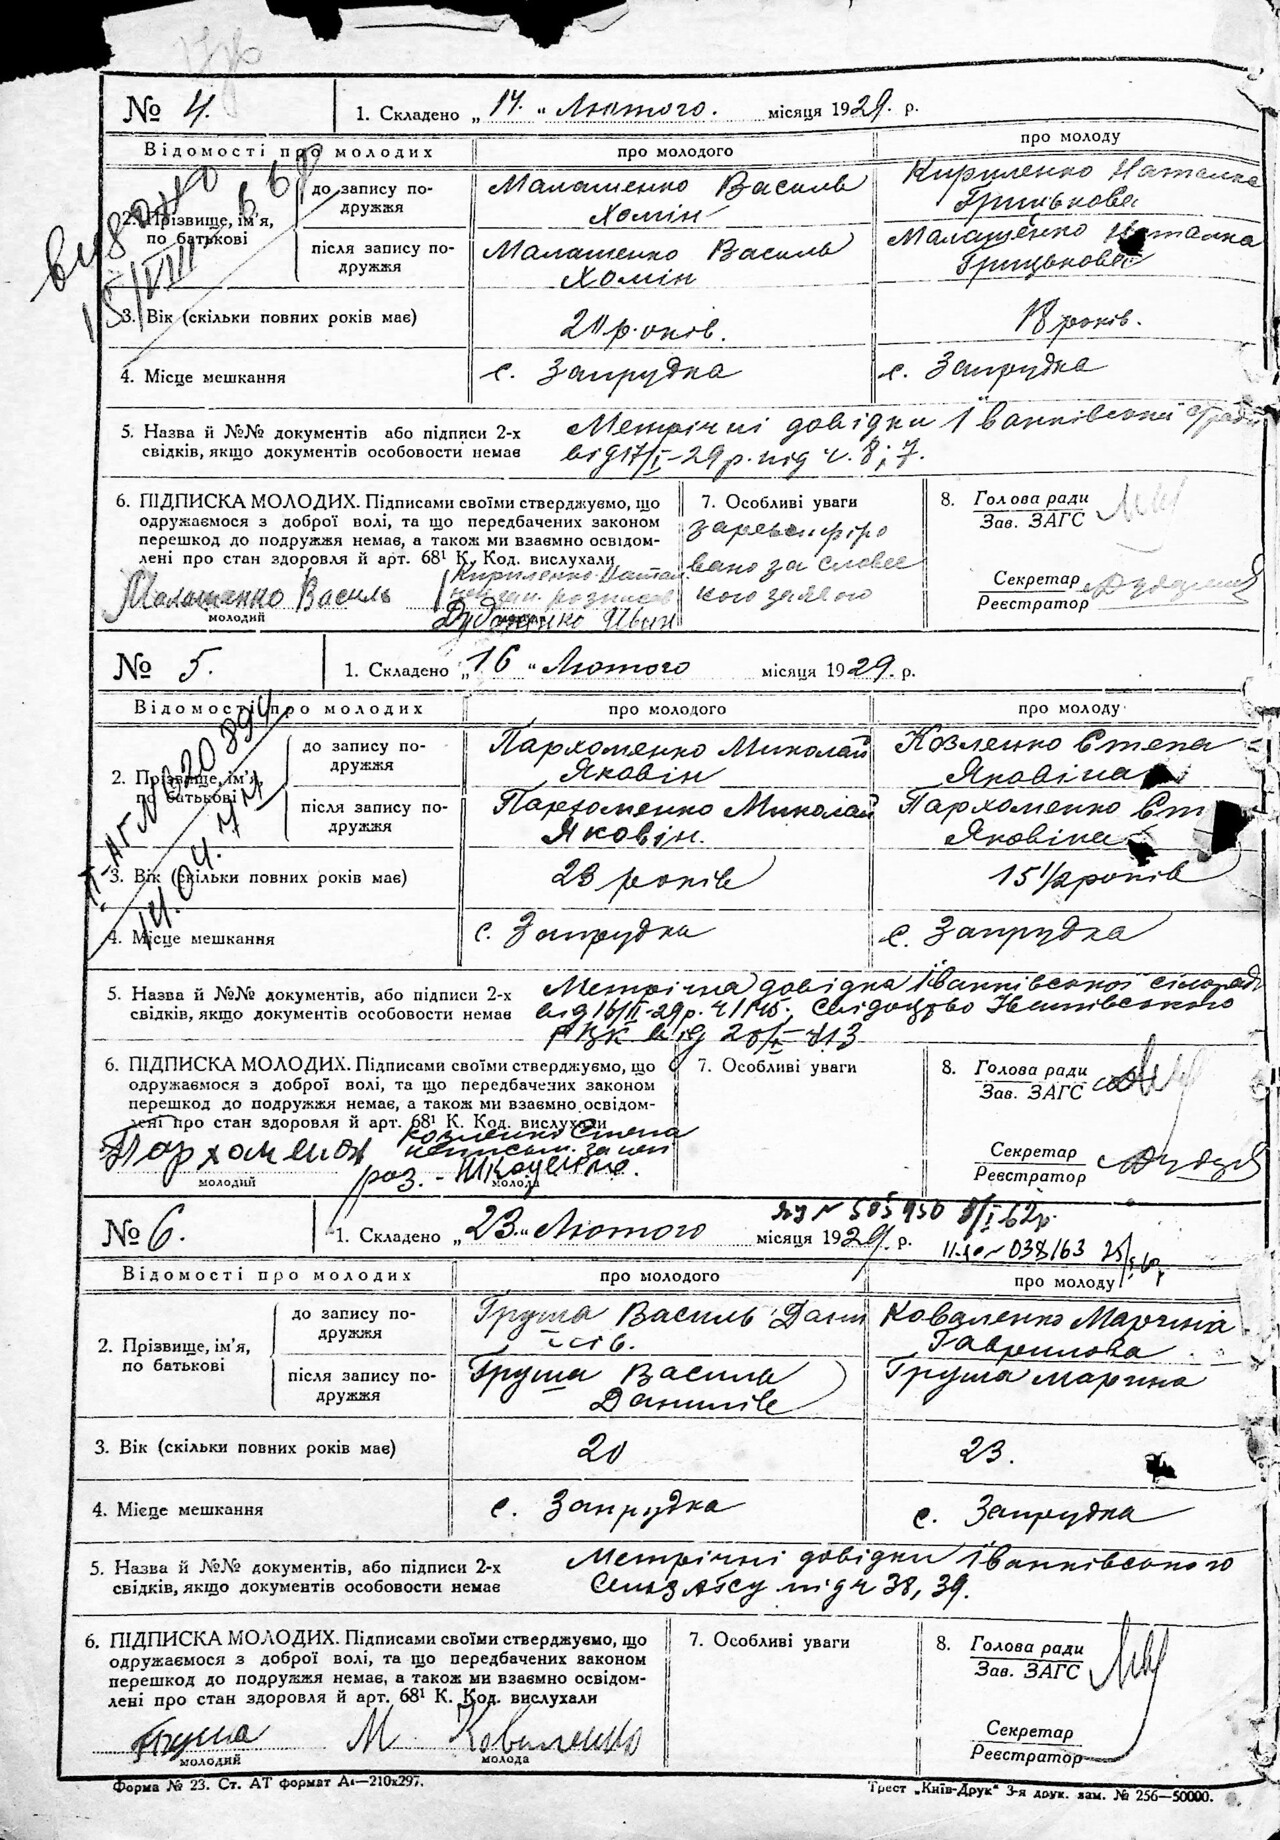 № 4. 1. Складено „14.“ Лютого. місяця 1929. р.
Відомості про молодих про молодого про молоду
видано
15/VIII
2. Прізвище, ім'я, по батькові
до запису по-дружжя Малашенко Василь Хомін Кириленко Наталка Грицькова
після запису по-дружжя Малашенко Василь Хомін Малашенко Наталка Грицькова
3. Вік (скільки повних років має) років. 18 років.
4. Місце мешкання с. Запрудка с. Запрудка
5. Назва й №№ документів або підписи 2-х Метрічні довідки Іванківської с/ради
свідків, якщо документів особовости немає від 17/I-29 р. під ч. 8 і 7.
6. ПІДПИСКА МОЛОДИХ. Підписами своїми стверджуємо, що
одружаємося з доброї волі, та що передбачених законом
перешкод до подружжя немає, а також ми взаємно освідом-
лені про стан здоровля й арт. 68¹ К. Код. вислухали
Малашенко Василь
молодий
Кириленко Натал.
7. Особливі уваги
зареєстріро
вано за словес
8. Голова ради
Зав. ЗАГС
Секретар
Реєстратор
№ 5. 1. Складено „16“ Лютого місяця 1929. р.
Відомості про молодих про молодого про молоду
14.04.77
2. Прізвище, ім'я, по батькові
до запису по-дружжя Пархоменко Миколай Яковін Козленко Степа Яковіна
після запису по-дружжя Пархоменко Миколай Яковін. Пархоменко Ст Яковіна
3. Вік (скільки повних років має) 23 років 15 1/2 років
4. Місце мешкання с. Запрудка с. Запрудка
5. Назва й №№ документів, або підписи 2-х Метрічна довідка Іванківської сільради
свідків, якщо документів особовости немає від 16/II-29 р. Свідоцтво Іванківського
РВК від
6. ПІДПИСКА МОЛОДИХ. Підписами своїми стверджуємо, що
одружаємося з доброї волі, та що передбачених законом
перешкод до подружжя немає, а також ми взаємно освідом-
лені про стан здоровля й арт. 68¹ К. Код. вислухали
Пархоменко
молодий
Козленко Степа
неписьм. за неї
роз.
молода
7. Особливі уваги
8. Голова ради
Зав. ЗАГС
Секретар
Реєстратор
№ 6. 1. Складено „23“ Лютого місяця 1929. р.
№ 505950 8/I 62 р.
№ 038163
Відомості про молодих про молодого про молоду
2. Прізвище, ім'я, по батькові
до запису по-дружжя Груша Василь Данилів. Коваленко Марина Гаврилова
після запису по-дружжя Груша Василь Данилів Груша Марина
3. Вік (скільки повних років має) 20 23.
4. Місце мешкання с. Запрудка с. Запрудка
5. Назва й №№ документів, або підписи 2-х Метрічні довідки Іванківського
свідків, якщо документів особовости немає СільЗАГСу під ч 38, 39.
6. ПІДПИСКА МОЛОДИХ. Підписами своїми стверджуємо, що
одружаємося з доброї волі, та що передбачених законом
перешкод до подружжя немає, а також ми взаємно освідом-
лені про стан здоровля й арт. 68¹ К. Код. вислухали
Груша М. Коваленко
молодий молода
7. Особливі уваги
8. Голова ради
Зав. ЗАГС
Секретар
Реєстратор
Форма № 23. Ст. АТ формат А₄—210x297. Трест „Київ-Друк“ 3-я друк. зам. № 256—50000.